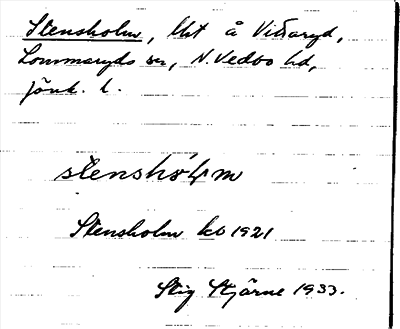 Stensholm, lht å Vittaryd,
Lommaryds sn, N. Vedbo hd,
Jönk. l.
stenshòɬm
Stensholm kb 1921
Stig Stjärne 1933.